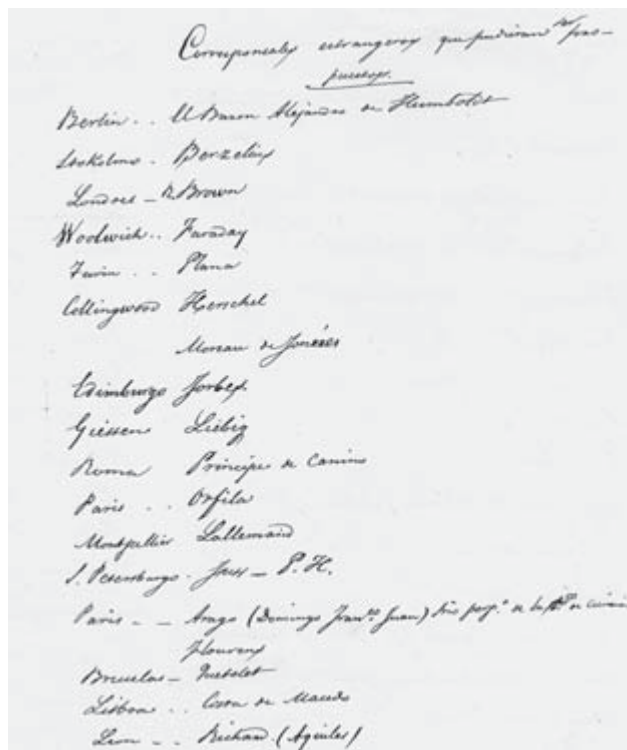 Corresponsales estrangeros que pudieran ser pro-
puestos.
Berlin .. El Baron Alejandro de Humboldt
Stokolmo . Berzelius
Londres — R Brown
Woolwich .. Faraday
Turin .. Plana
Collingwood Herschel
Moreau de Jonnés
Edimburgo Forbes
Giessen Liebig
Roma Principe de Canino
Paris .. Orfila
Montpellier Lallemand
S. Petersburgo . Fuss — P. H.
Paris — — Arago (Domingo Fran.co Juan) Srio perp.o de la de
Flourens
Bruselas — Quetelet
Lisboa .. Costa de Macedo
Leon — . Richard (Aquiles)